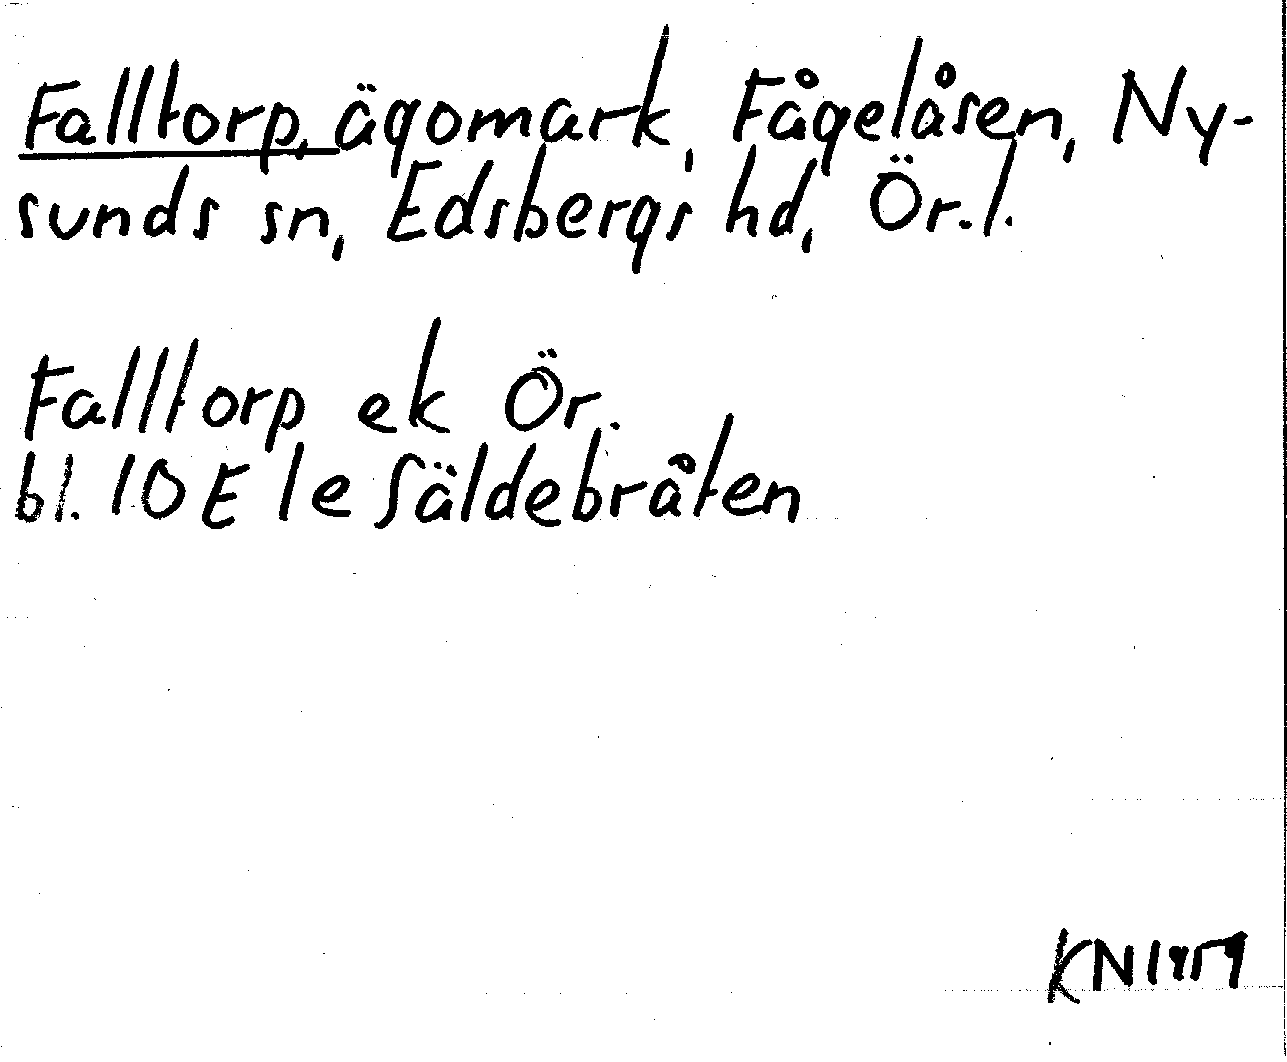 Falltorp, ägomark, Fågelåsen, Ny-
sunds sn, Edsbergs hd, Ör.l.
Falltorp ek Ör.
bl. 10 E 1e Säldebråten
KN 1959